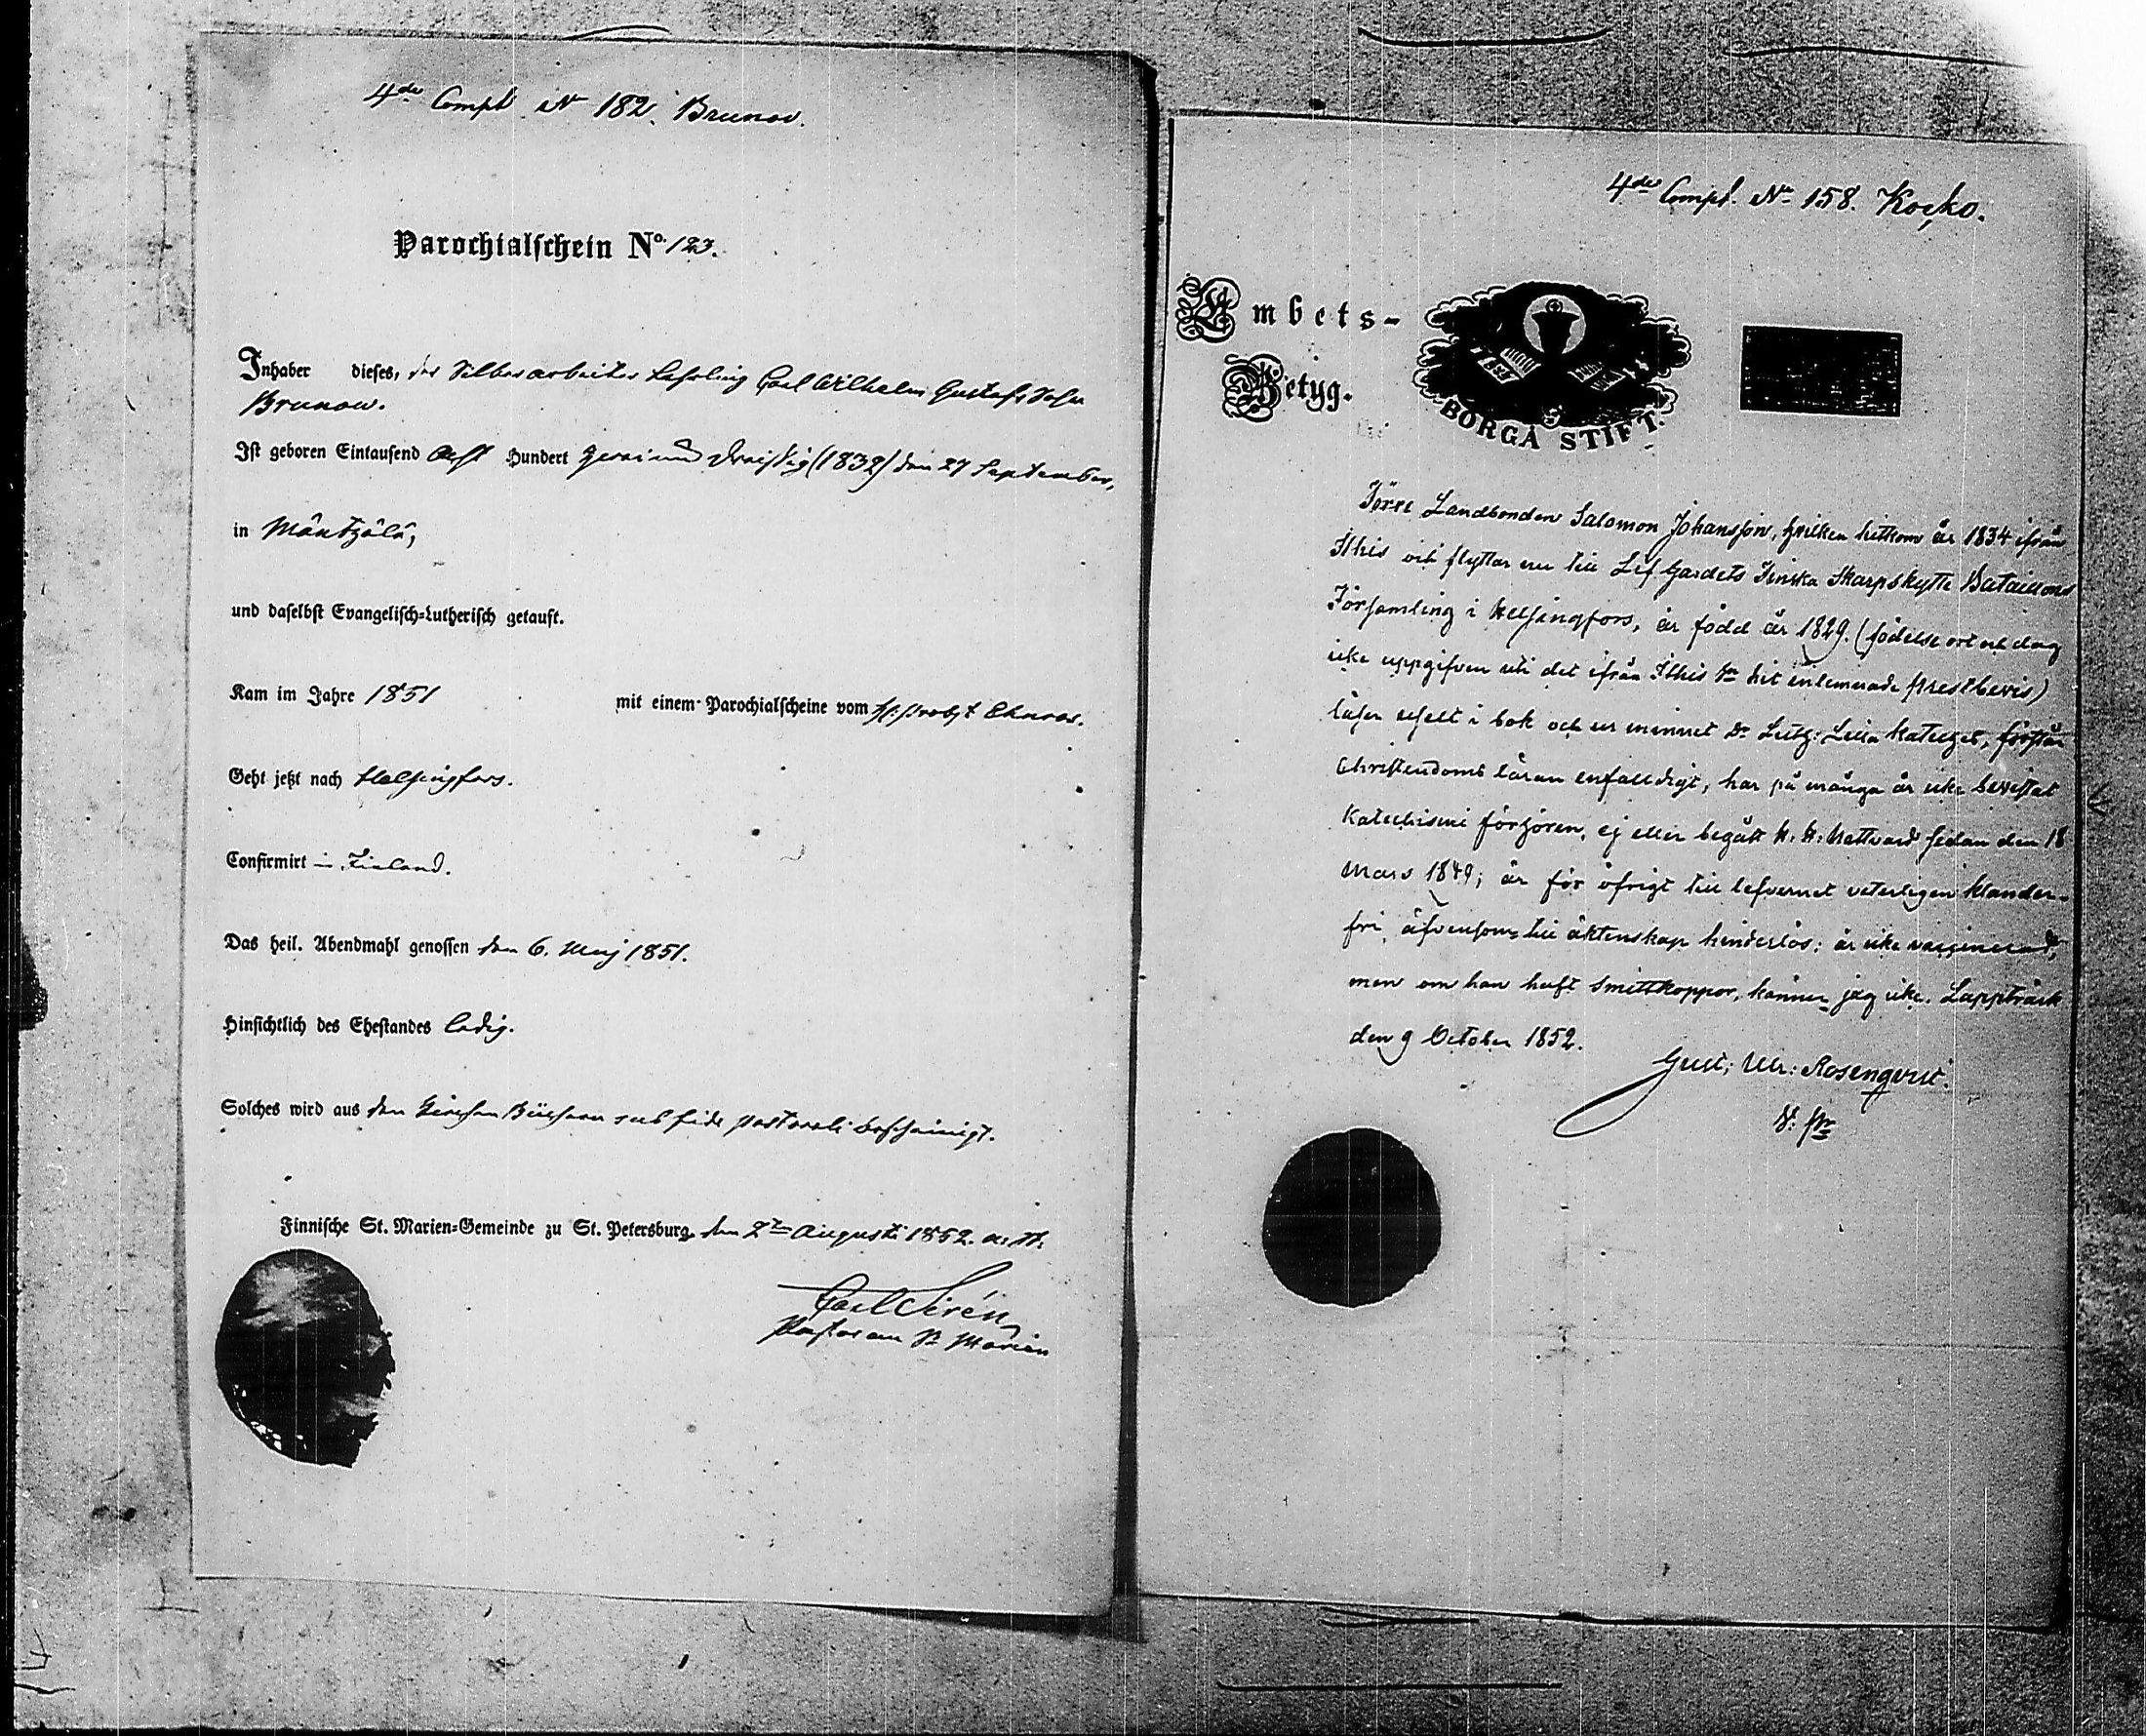 4de Comp. No 182. Brunov.
Parochialschein No. 123.
Inhaber dieses, der Silberarbeiter Lehrling Carl Wilhelm Gustafs Sohn
Brunow.
Ist geboren Eintausend Acht Hundert zwei und dreissig (1832) den 27 September,
in Mäntzälä,
und daselbst Evangelisch-Lutherisch getauft.
Kam im Jahre 1851 mit einem Parochialscheine vom
Geht jetzt nach Helsingfors.
Confirmirt in Finland.
Das heil. Abendmahl genossen den 6. Maj 1851.
Hinsichtlich des Ehestandes ledig.
Solches wird aus den Kirchen Büchern sub fide pastorali bescheinigt.
Finnische St. Marien-Gemeinde zu St. Petersburg, den 2ten Augusti 1852. a. St.
Carl Sirén
Pastor an St Marien
4de Comp. No 158. Kosko.
Embets-
Betyg.
BORGÅ STIFT.
Förre Landbonden Salomon Johansson, hvilken hitkom år 1834 ifrån
Ithis och flyttar nu till Lif Gardets Finska Skarpskytte Bataillons
Församling i Helsingfors, är född år 1829. (födelse ort och dag
icke uppgifven uti det ifrån Ithis hit inlemnade prestbevis)
läser i bok och ur minnet Dr Lilla Kateches, förstår
Christendoms läran enfalldigt, har på många år icke bevistat
Katechismi förhören, ej eller begått H. H. Nattvard sedan den 18
Mars 1849; är för öfrigt till lefvernet veterligen klander-
fri, äfvensom till äktenskap hinderlös; är icke vaccinerad,
men om han haft smittkoppor, känner jag icke. Lappträsk
den 9 October 1852.
Gust. Rosenqvist.
V. Pr